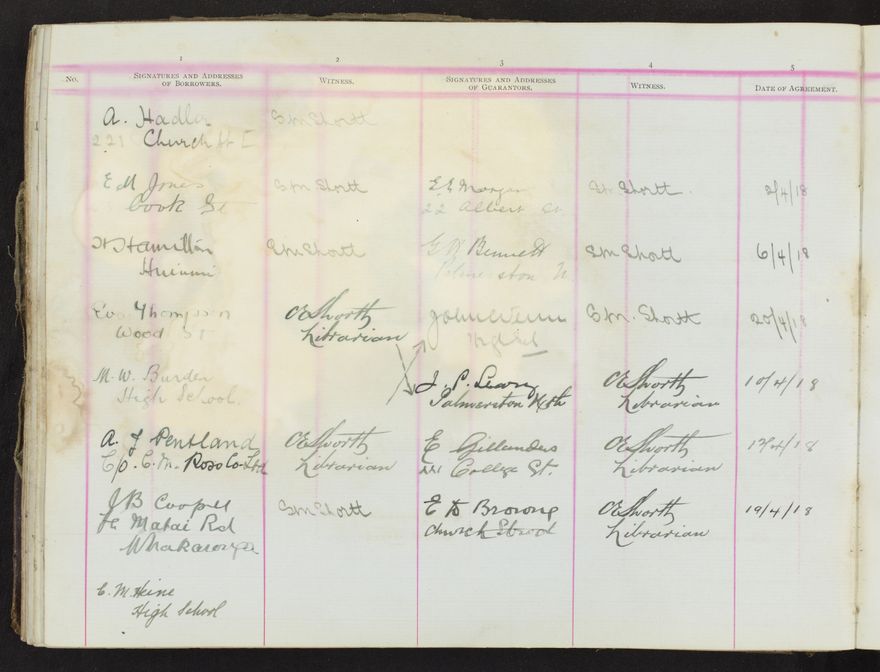 1 2 3 4 5
No. SIGNATURES AND ADDRESSES OF BORROWERS. WITNESS. SIGNATURES AND ADDRESSES OF GUARANTORS. WITNESS. DATE OF AGREEMENT.
A. Hadler S M Shortt
221 Church St E
E M Jones S M Shortt E E Morgan S M Shortt. 2/4/18
Cook St 22 Albert St
H Hamilton S M Shortt G W Bennett S M Shortt 6/4/18
Palmerston N
Eva Thompson Shorth S M. Shortt 20/4/18
Wood St Librarian High Sch
M. W. Burden J. P. Leary Shorth 10/4/18
High School. Palmerston Nth Librarian
A. J Pentland Shorth E Gillanders Shorth 12/4/18
C/o. C. M. Ross Co Ltd Librarian College St. Librarian
J B Cooper S M Shortt E Browne Shorth 19/4/18
Matai Rd Church Street Librarian
Whakaronga
C. M. Heine
High School